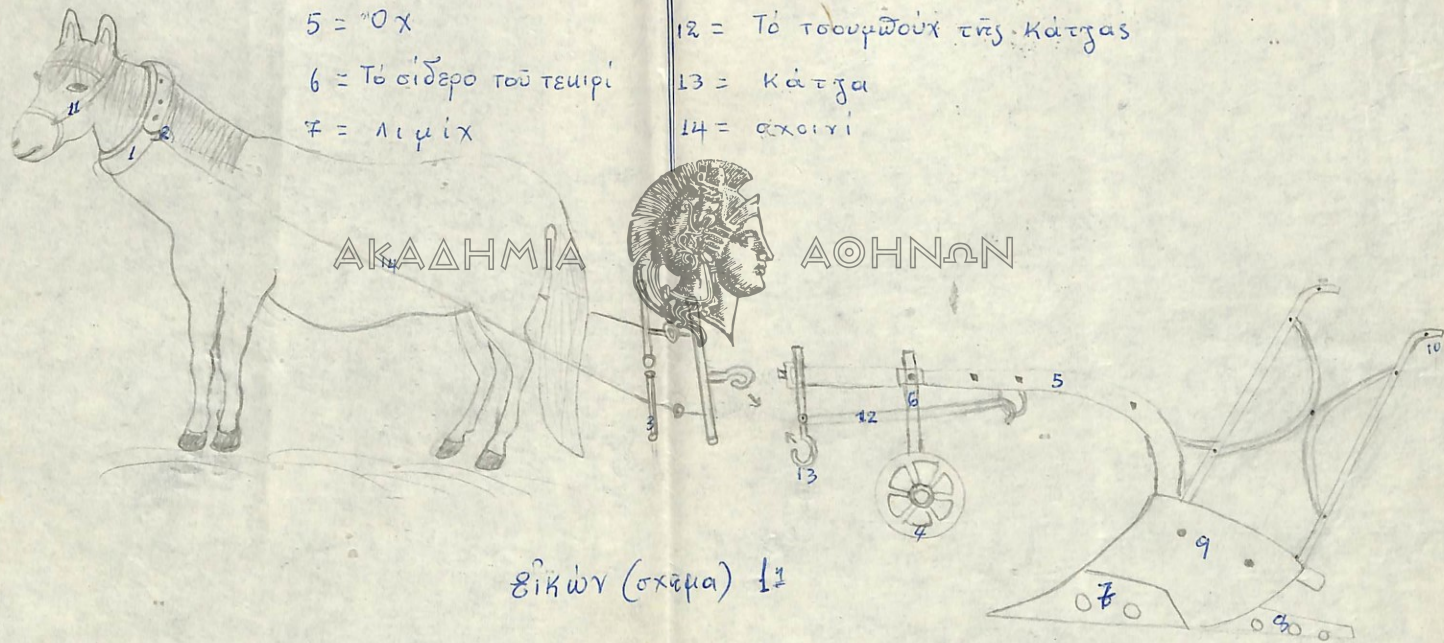 5 = Ὄχ
6 = Τό σίδερο τοῦ τεκιρί
7 = Λιμίχ
12 = Τό τσουμπούχ τῆς Κάτζας
13 = Κάτζα
14 = σχοινί
11
2
1
14
ΑΚΑΔΗΜΙΑ ΑΘΗΝΩΝ
3
5
6
12
13
4
10
9
7
8
εἰκών (σχῆμα) 11